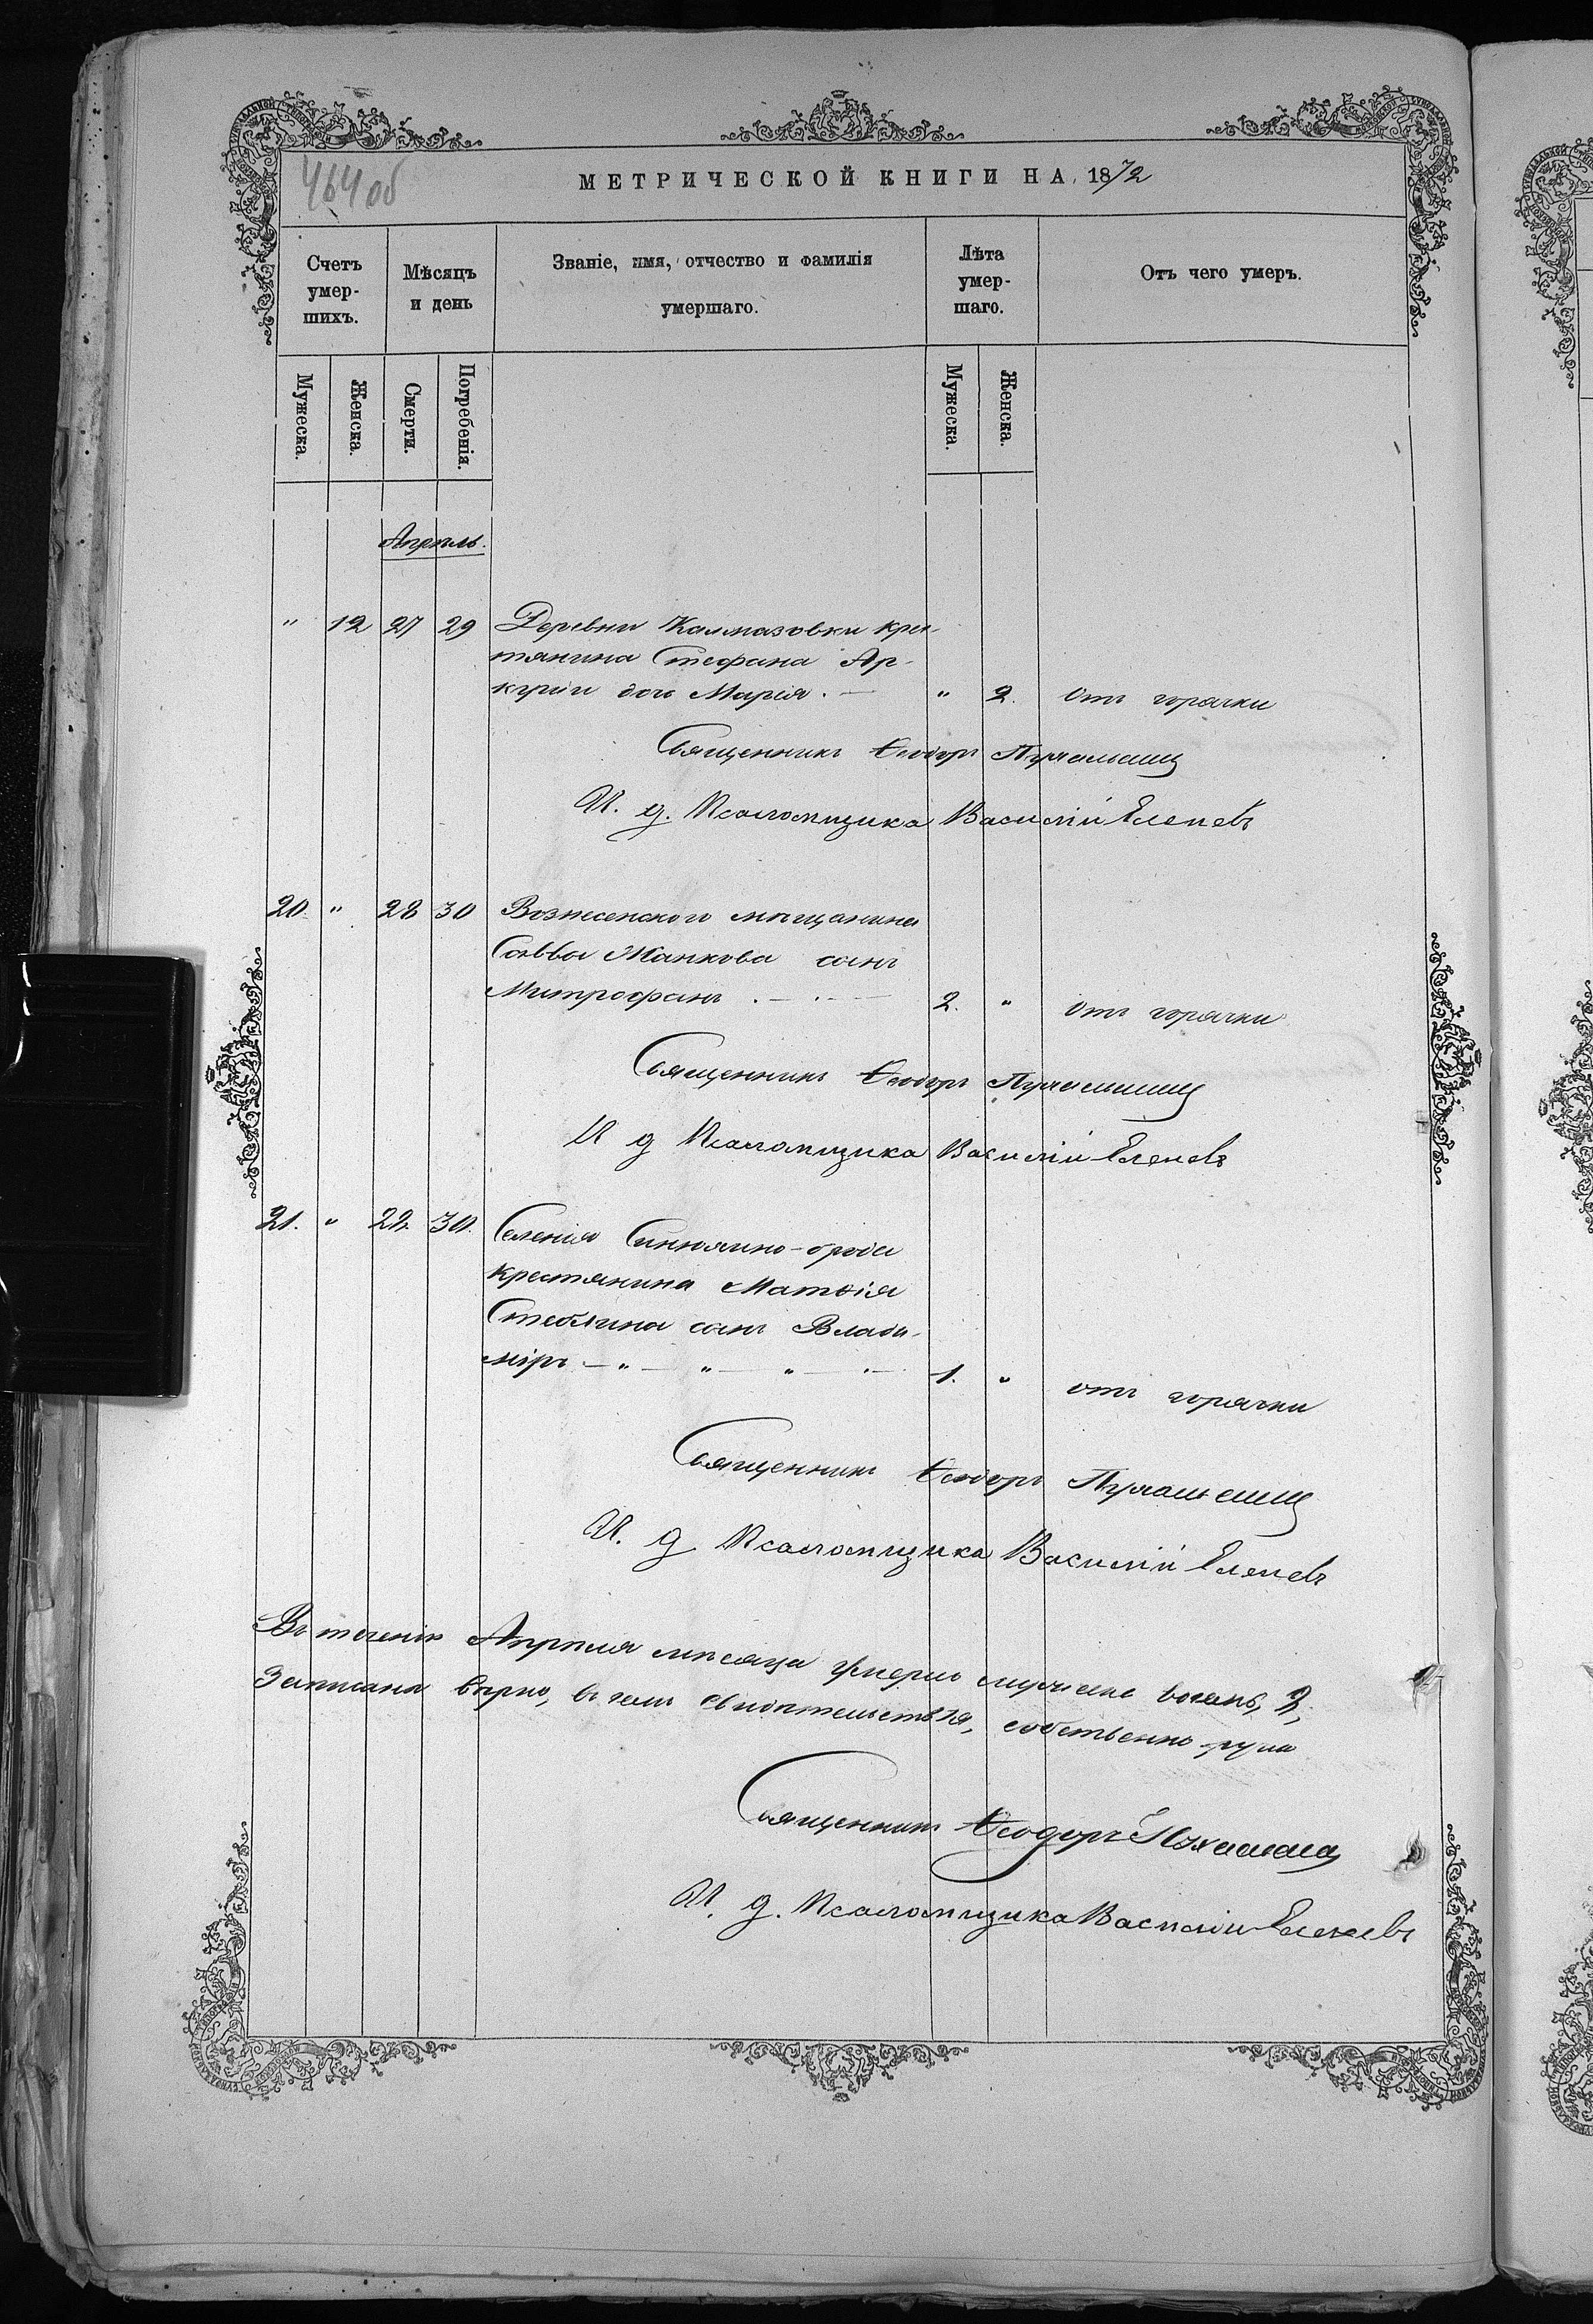 464 об
МЕТРИЧЕСКОЙ КНИГИ НА 1872
Счетъ умер-шихъ.
Мѣсяцъ и день
Званіе, имя, отчество и фамилія умершаго.
Лѣта умер-шаго.
Отъ чего умеръ.
Мужеска.
Женска.
Смерти.
Погребенія.
Мужеска.
Женска.
Апрѣль.
" 12 27 29 Деревни Калмазовки крес-
тянина Стефана Ар-
дочь Марія. — " 2. Отъ горячки
Священникъ Ѳеодоръ
И. д. Псаломщика Василій
20. " 28 30 Вознесенскаго мѣщанина
Саввы Манкова сынъ
Митрофанъ . — . — 2. " Отъ горячки
Священникъ Ѳеодоръ
И д Псаломщика Василій
21. " 30. Селенія Синюхино-брода
крестянина Матѳія
сынъ Влади-
міръ — " — " — " — 1. " отъ горячки
Священникъ Ѳеодоръ
И. д Псаломщика Василій
Въ теченіе Апрѣля мѣсяца умерло мужеска
Записано вѣрно, въ чемъ собственно
Священникъ Ѳеодоръ
И. д. Псаломщика Василій